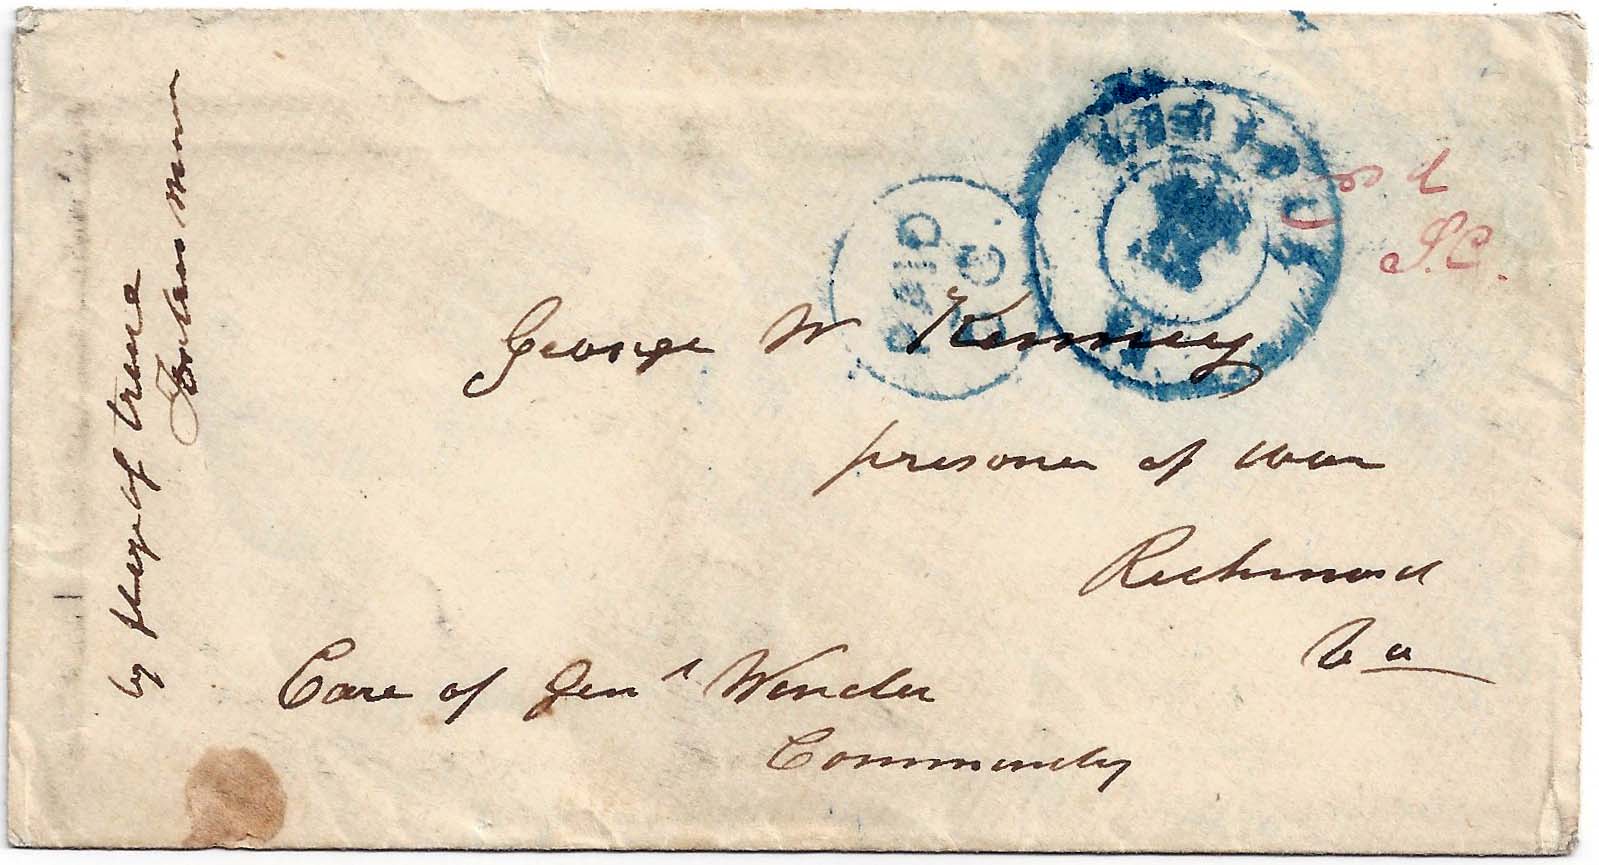 by flag of truce
Fortress Monroe
PAID
George W Kenney
prisoner of war
Richmond
Va
Care of Genl Winder
Commandg